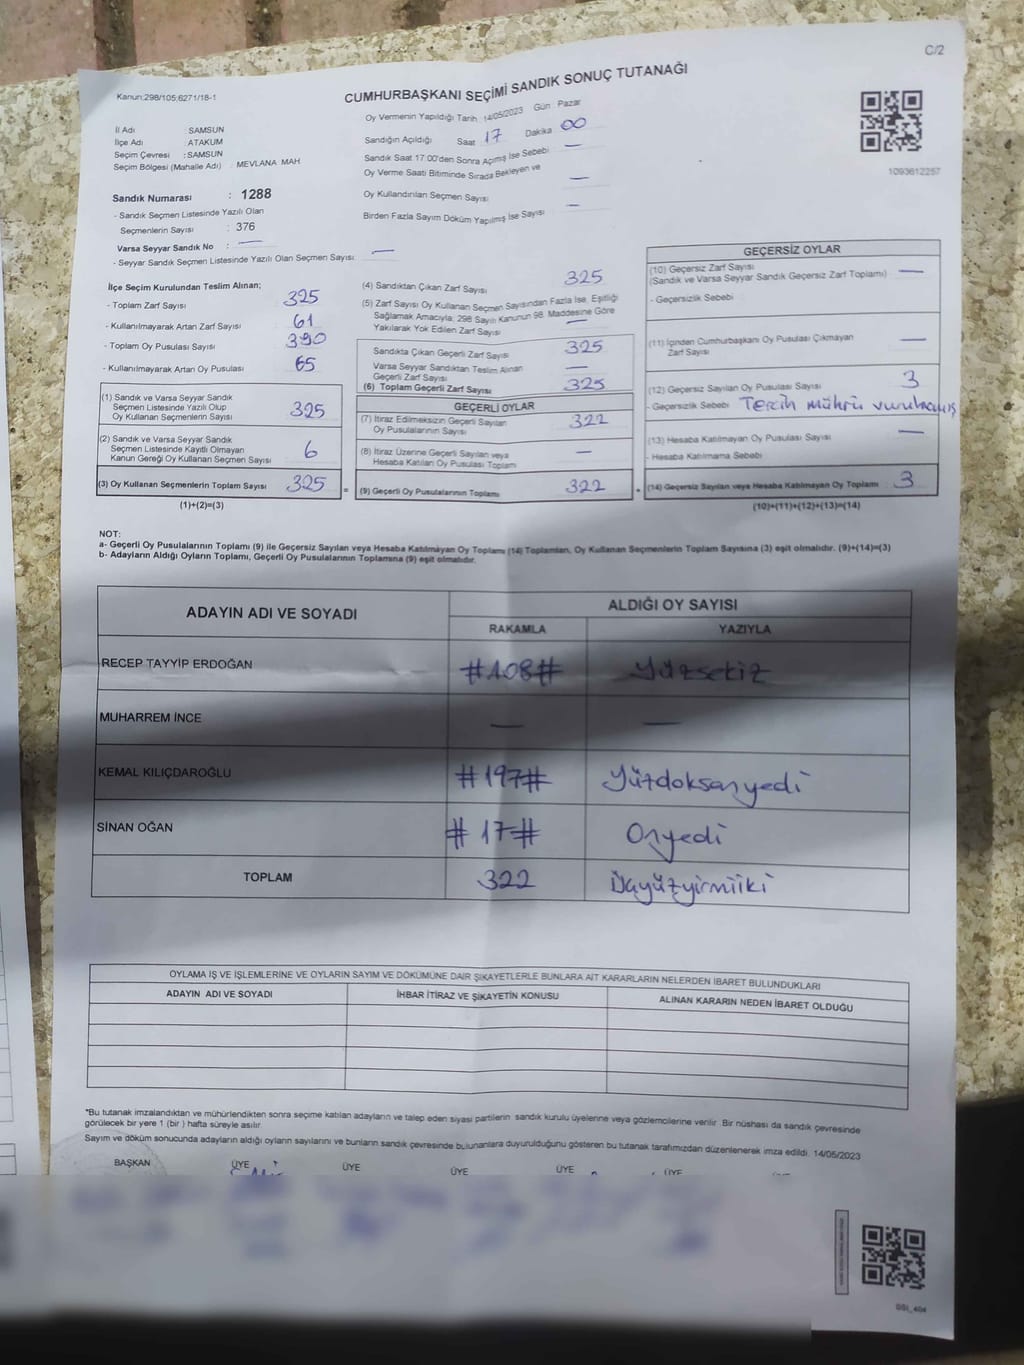 C/2
Kanun:298/105;6271/18-1
CUMHURBAŞKANI SEÇİMİ SANDIK SONUÇ TUTANAĞI
1093612257
İl Adı : SAMSUN
İlçe Adı : ATAKUM
Seçim Çevresi : SAMSUN
Seçim Bölgesi (Mahalle Adı) : MEVLANA MAH
Sandık Numarası : 1288
- Sandık Seçmen Listesinde Yazılı Olan
Seçmenlerin Sayısı : 376
Varsa Seyyar Sandık No : —
- Seyyar Sandık Seçmen Listesinde Yazılı Olan Seçmen Sayısı —
Oy Vermenin Yapıldığı Tarih 14/05/2023 Gün Pazar
Sandığın Açıldığı Saat 17 Dakika 00
Sandık Saat 17:00'den Sonra Açmış İse Sebebi —
Oy Verme Saati Bitiminde Sırada Bekleyen ve
Oy Kullandırılan Seçmen Sayısı —
Birden Fazla Sayım Döküm Yapılmış İse Sayısı —
İlçe Seçim Kurulundan Teslim Alınan;
- Toplam Zarf Sayısı 325
- Kullanılmayarak Artan Zarf Sayısı 61
- Toplam Oy Pusulası Sayısı 390
- Kullanılmayarak Artan Oy Pusulası 65
(1) Sandık ve Varsa Seyyar Sandık
Seçmen Listesinde Yazılı Olup
Oy Kullanan Seçmenlerin Sayısı 325
(2) Sandık ve Varsa Seyyar Sandık
Seçmen Listesinde Kayıtlı Olmayan
Kanun Gereği Oy Kullanan Seçmen Sayısı 6
(3) Oy Kullanan Seçmenlerin Toplam Sayısı 325 =
(1)+(2)=(3)
(4) Sandıktan Çıkan Zarf Sayısı 325
(5) Zarf Sayısı Oy Kullanan Seçmen Sayısından Fazla İse, Eşitliği
Sağlamak Amacıyla; 298 Sayılı Kanunun 98. Maddesine Göre
Yakılarak Yok Edilen Zarf Sayısı —
Sandıkta Çıkan Geçerli Zarf Sayısı 325
Varsa Seyyar Sandıktan Teslim Alınan
Geçerli Zarf Sayısı —
(6) Toplam Geçerli Zarf Sayısı 325
GEÇERLİ OYLAR
(7) İtiraz Edilmeksizin Geçerli Sayılan
Oy Pusulalarının Sayısı 322
(8) İtiraz Üzerine Geçerli Sayılan veya
Hesaba Katılan Oy Pusulası Toplamı —
(9) Geçerli Oy Pusulalarının Toplamı 322 +
GEÇERSİZ OYLAR
(10) Geçersiz Zarf Sayısı
(Sandık ve Varsa Seyyar Sandık Geçersiz Zarf Toplamı) —
- Geçersizlik Sebebi
(11) İçinden Cumhurbaşkanı Oy Pusulası Çıkmayan
Zarf Sayısı —
(12) Geçersiz Sayılan Oy Pusulası Sayısı 3
- Geçersizlik Sebebi Tercih mührü vurulmamış
(13) Hesaba Katılmayan Oy Pusulası Sayısı —
- Hesaba Katılmama Sebebi
(14) Geçersiz Sayılan veya Hesaba Katılmayan Oy Toplamı 3
(10)+(11)+(12)+(13)=(14)
NOT:
a- Geçerli Oy Pusulalarının Toplamı (9) ile Geçersiz Sayılan veya Hesaba Katılmayan Oy Toplamı (14) Toplamları, Oy Kullanan Seçmenlerin Toplam Sayısına (3) eşit olmalıdır. (9)+(14)=(3)
b- Adayların Aldığı Oyların Toplamı, Geçerli Oy Pusulalarının Toplamına (9) eşit olmalıdır.
ADAYIN ADI VE SOYADI
ALDIĞI OY SAYISI
RAKAMLA YAZIYLA
RECEP TAYYİP ERDOĞAN #108# Yüzsekiz
MUHARREM İNCE — —
KEMAL KILIÇDAROĞLU #197# Yüzdoksanyedi
SİNAN OĞAN #17# Onyedi
TOPLAM 322 Üçyüzyirmiiki
OYLAMA İŞ VE İŞLEMLERİNE VE OYLARIN SAYIM VE DÖKÜMÜNE DAİR ŞİKAYETLERLE BUNLARA AİT KARARLARIN NELERDEN İBARET BULUNDUKLARI
ADAYIN ADI VE SOYADI İHBAR İTİRAZ VE ŞİKAYETİN KONUSU ALINAN KARARIN NEDEN İBARET OLDUĞU
*Bu tutanak imzalandıktan ve mühürlendikten sonra seçime katılan adayların ve talep eden siyasi partilerin sandık kurulu üyelerine veya gözlemcilerine verilir. Bir nüshası da sandık çevresinde
görülecek bir yere 1 (bir ) hafta süreyle asılır.
Sayım ve döküm sonucunda adayların aldığı oyların sayılarını ve bunların sandık çevresinde bulunanlara duyurulduğunu gösteren bu tutanak tarafımızdan düzenlenerek imza edildi. 14/05/2023
BAŞKAN ÜYE ÜYE ÜYE ÜYE ÜYE